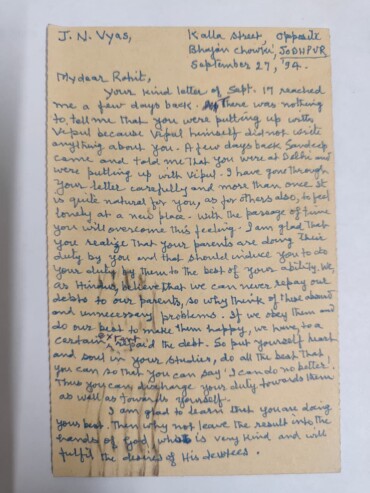 J. N. Vyas,
Kalla Street, Opposite
Bhajan Chowki, JODHPUR
September 27, '94.
My dear Rohit,
Your kind letter of Sept. 17 reached
me a few days back. There was nothing
to tell me that you were putting up with
Vipul because Vipul himself did not write
anything about you. A few days back Sandeep
came and told me that you were at Delhi and
were putting up with Vipul. I have gone through
your letter carefully and more than once. It
is quite natural for you, as for others also, to feel
lonely at a new place. With the passage of time
you will overcome this feeling. I am glad that
you realize that your parents are doing their
duty by you and that should induce you to do
your duty by them to the best of your ability. We,
as Hindus, believe that we can never repay our
debts to our parents, so why think of these absurd
and unnecessary problems. If we obey them and
do our best to make them happy, we have, to a
certain extent, paid the debt. So put yourself heart
and soul in your studies, do all the best that
you can so that you can say 'I can do no better'.
Thus you can discharge your duty towards them
as well as towards yourself.
I am glad to learn that you are doing
your best. Then why not leave the result into the
hands of God, who is very kind and will
fulfil the desires of His devotees.